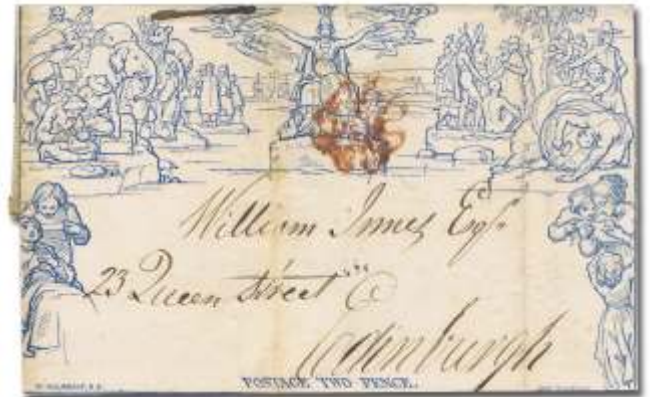 William Innes Esqr
23 Queen Street
Edinburgh
W. MULREADY, R.A.
POSTAGE TWO PENCE.